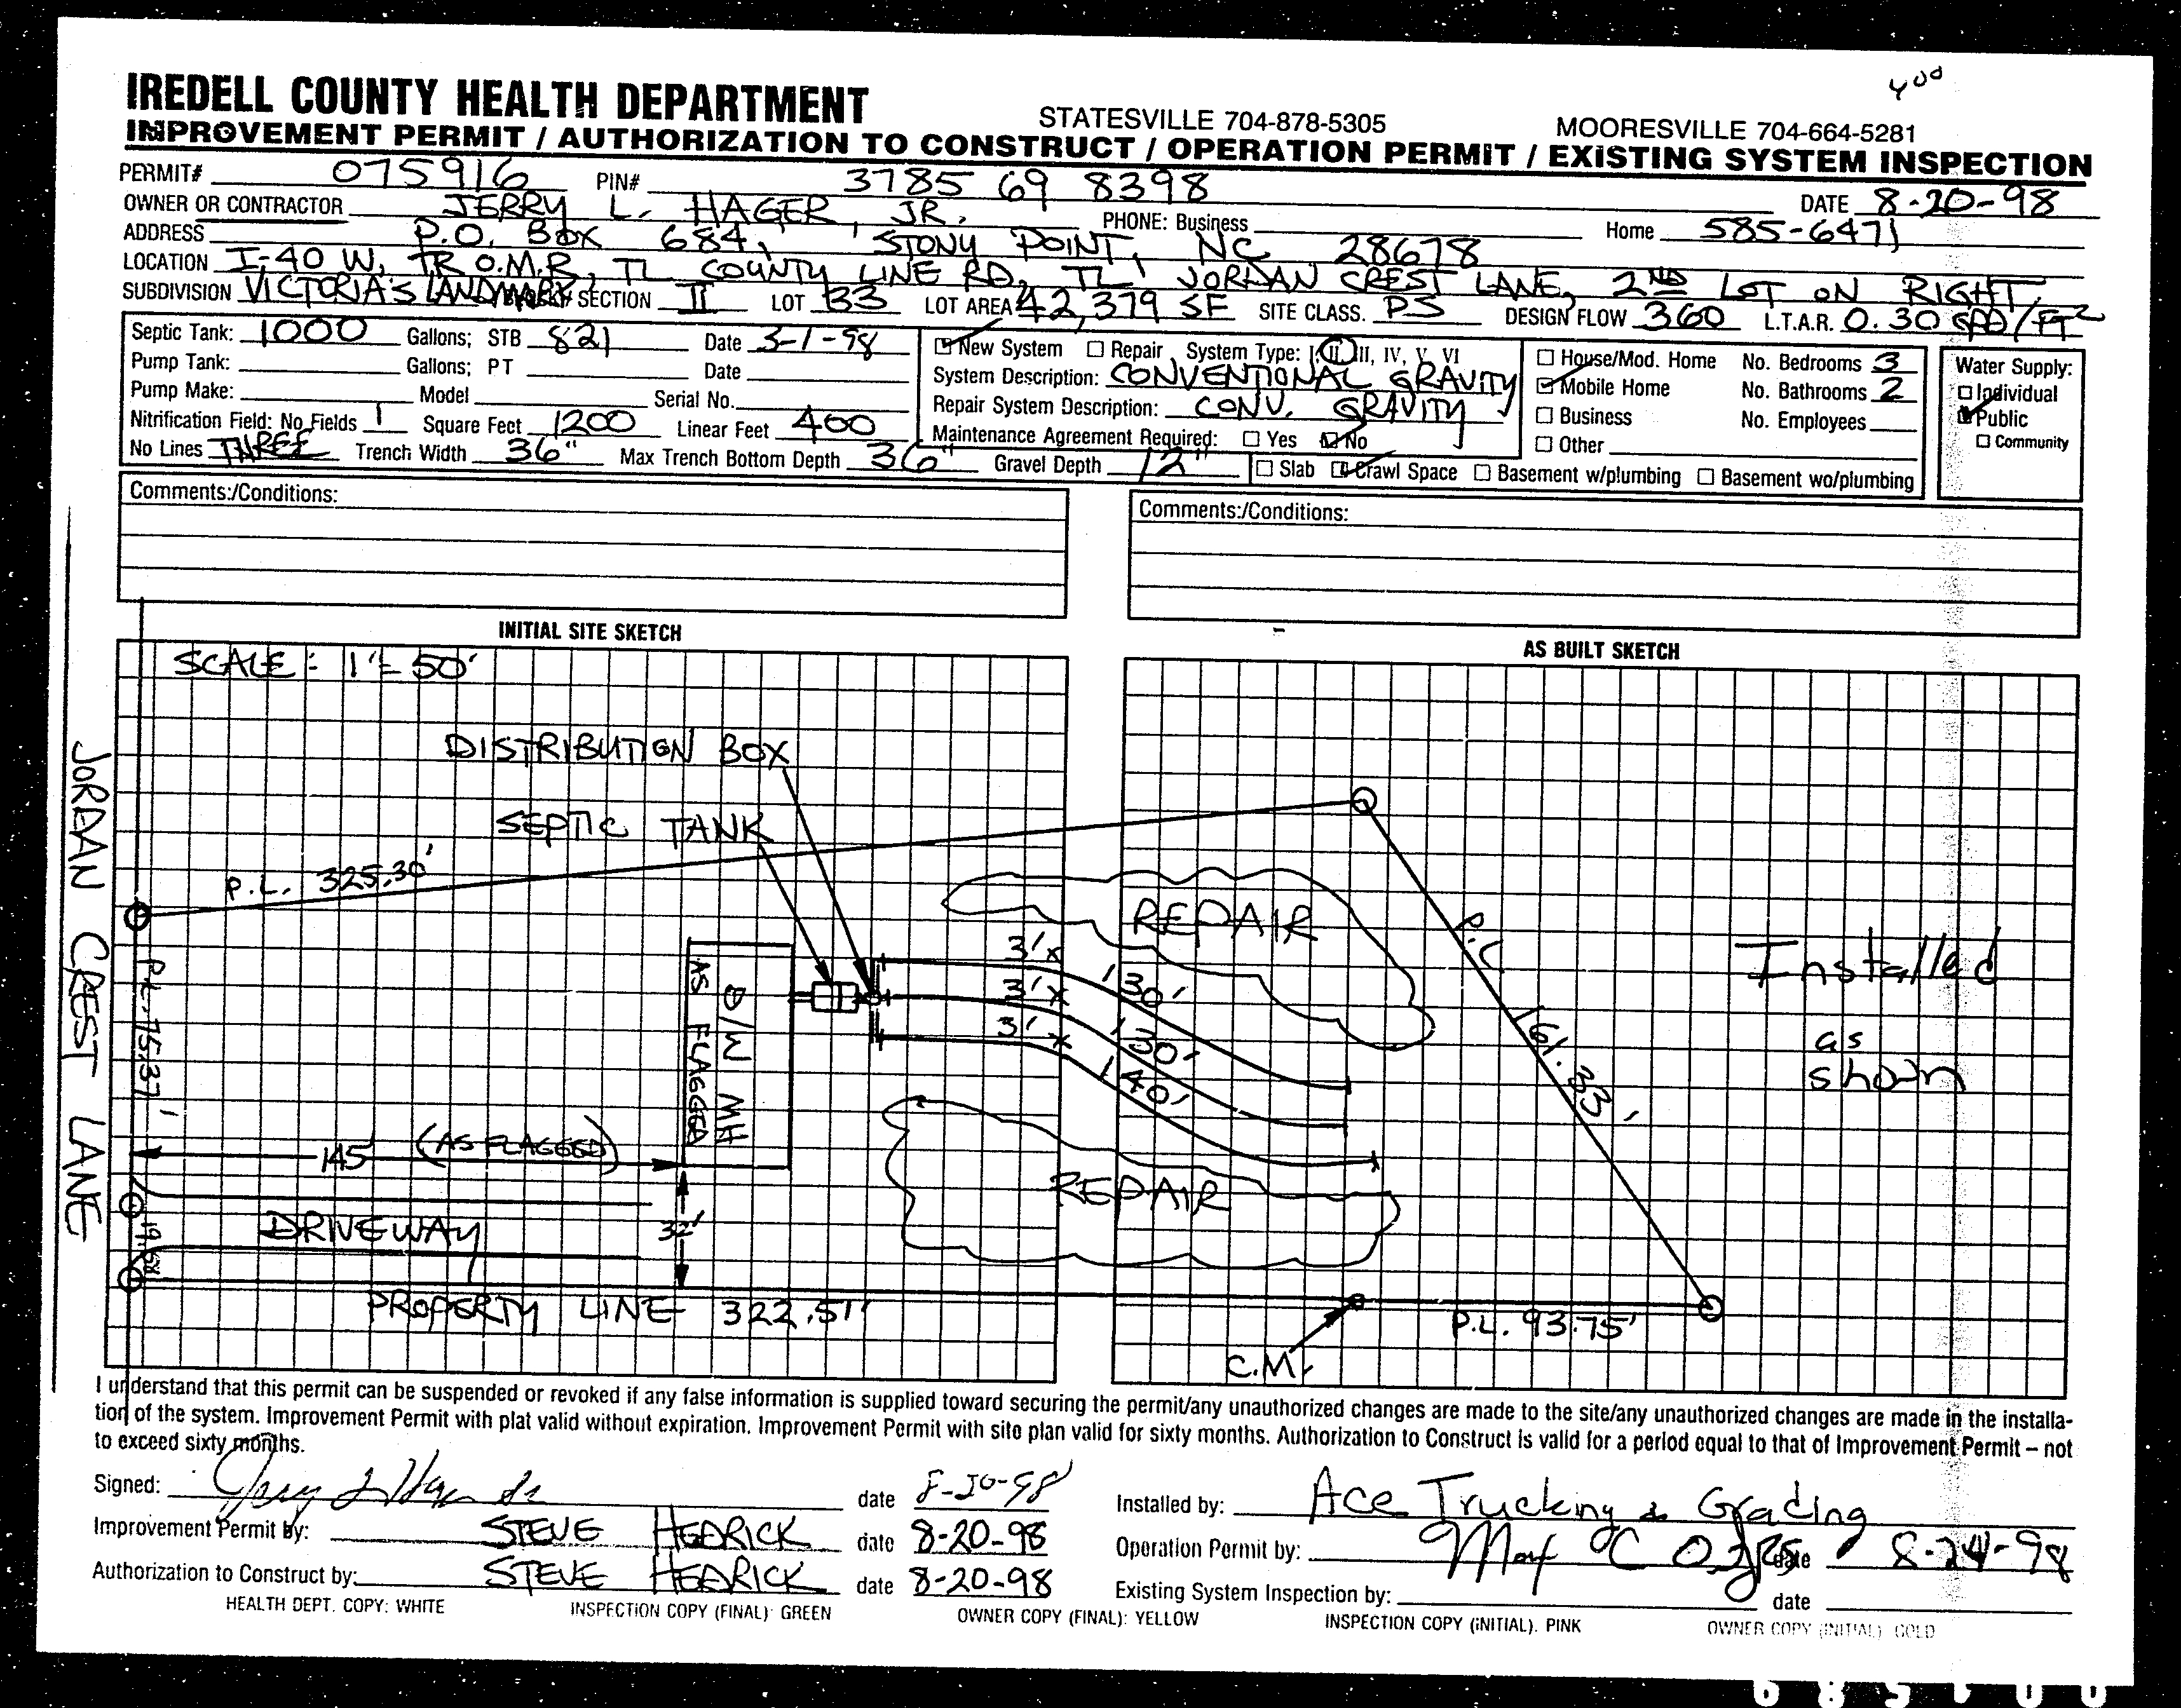 400
IREDELL COUNTY HEALTH DEPARTMENT STATESVILLE 704-878-5305 MOORESVILLE 704-664-5281
IMPROVEMENT PERMIT / AUTHORIZATION TO CONSTRUCT / OPERATION PERMIT / EXISTING SYSTEM INSPECTION
PERMIT# 075916 PIN# 3785 69 8398 DATE 8-20-98
OWNER OR CONTRACTOR JERRY L. HAGER, JR. PHONE: Business Home 585-6471
ADDRESS P.O. BOX 684, STONY POINT, NC 28678
LOCATION I-40 W, TR O.M.R, TL COUNTY LINE RD, TL JORDAN CREST LANE, 2ND LOT ON RIGHT
SUBDIVISION VICTORIA'S LANDMARK SECTION II LOT 33 LOT AREA 42,379 SF SITE CLASS. PS DESIGN FLOW 360 L.T.A.R. 0.30 GPD/FT2
Septic Tank: 1000 Gallons; STB 821 Date 3-1-98
Pump Tank: Gallons; PT Date
Pump Make: Model Serial No.
Nitrification Field: No Fields 1 Square Feet 1200 Linear Feet 400
No Lines THREE Trench Width 36" Max Trench Bottom Depth 36" Gravel Depth 12"
New System Repair System Type: I, II, III, IV, V, VI
System Description: CONVENTIONAL GRAVITY
Repair System Description: CONV. GRAVITY
Maintenance Agreement Required: Yes No
House/Mod. Home No. Bedrooms 3
Mobile Home No. Bathrooms 2
Business No. Employees
Other
Slab Crawl Space Basement w/plumbing Basement wo/plumbing
Water Supply:
Individual
Public
Community
Comments:/Conditions:
Comments:/Conditions:
INITIAL SITE SKETCH
AS BUILT SKETCH
SCALE: 1"= 50'
DISTRIBUTION BOX
SEPTIC TANK
P.L. 325.30'
JORDAN CREST LANE
P.L. 75.37'
19.68'
D/W MH
AS FLAGGED
3' x 130'
3' x 130'
3' x 140'
REPAIR
REPAIR
P.L. 161.33'
Installed
as
shown
145' (AS FLAGGED)
32'
DRIVEWAY
PROPERTY LINE 322.51'
P.L. 93.75'
C.M.
I understand that this permit can be suspended or revoked if any false information is supplied toward securing the permit/any unauthorized changes are made to the site/any unauthorized changes are made in the installa-
tion of the system. Improvement Permit with plat valid without expiration. Improvement Permit with site plan valid for sixty months. Authorization to Construct is valid for a period equal to that of Improvement Permit – not
to exceed sixty months.
Signed: date 8-20-98
Improvement Permit by: STEVE HEDRICK date 8-20-98
Authorization to Construct by: STEVE HEDRICK date 8-20-98
Installed by: Ace Trucking & Grading
Operation Permit by: date 8-24-98
Existing System Inspection by: date
HEALTH DEPT. COPY: WHITE INSPECTION COPY (FINAL): GREEN OWNER COPY (FINAL): YELLOW INSPECTION COPY (INITIAL). PINK OWNER COPY (INITIAL) GOLD